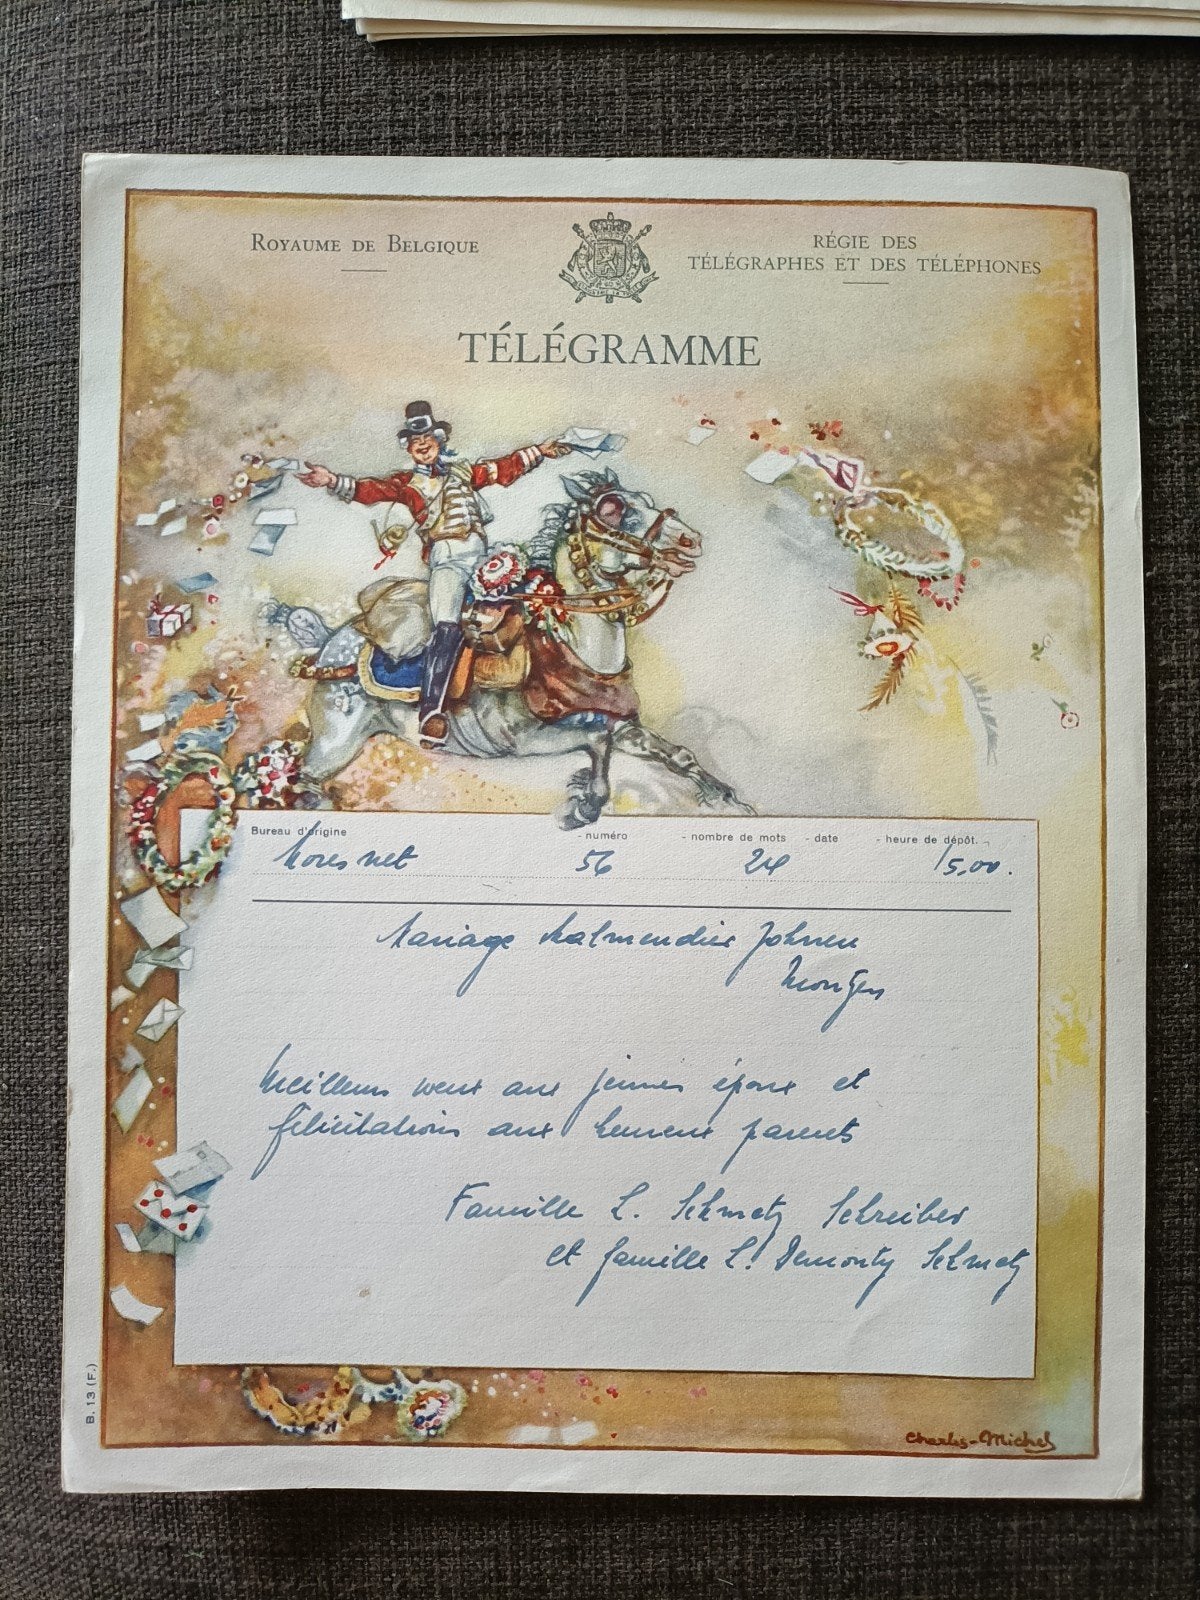 ROYAUME DE BELGIQUE
RÉGIE DES
TÉLÉGRAPHES ET DES TÉLÉPHONES
TÉLÉGRAMME
Bureau d'origine - numéro - nombre de mots - date - heure de dépôt.
Moresnet 56 24 15,00.
Mariage Malmendier Johnen
Montzen
Meilleurs vœux aux jeunes époux et
félicitations aux heureux parents
Famille L. Schmetz Schreiber
et famille L. Demonty Schmetz
B. 13 (F.)
Charles-Michel